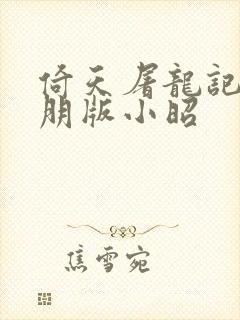 倚天屠龍記
朋版小昭
焦雪宛